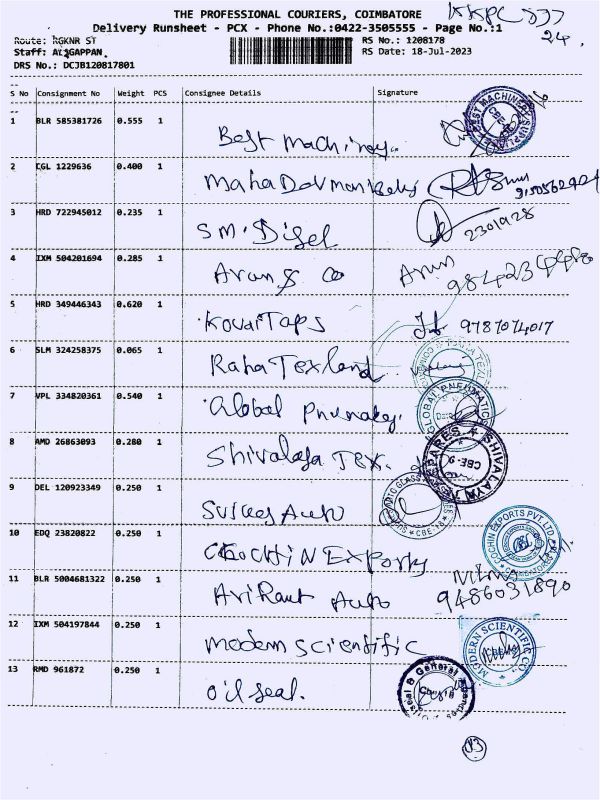 THE PROFESSIONAL COURIERS, COIMBATORE
Delivery Runsheet - PCX - Phone No.:0422-3505555 - Page No.:1
Route: RGKNR ST
RS No.: 1208178
24
Staff: ALAGAPPAN
RS Date: 18-Jul-2023
DRS No.: DCJB120817801
S No Consignment No Weight PCS Consignee Details Signature
1 BLR 585381726 0.555 1
Best Machinery
2 CGL 1229636 0.400 1
3 HRD 722945012 0.235 1
SM. Disel 2301928
4 IXM 504201694 0.285 1
Arun & Co Arun
5 HRD 349446343 0.620 1
Kovai Taps 9787074017
6 SLM 324258375 0.065 1
Raha Texland
7 VPL 334820361 0.540 1
Global
GLOBAL PNEUMATICS
8 AMD 26863093 0.280 1
Shivalaya Tex.
SPARES * SHIVALAYA
CBE-9
9 DEL 120923349 0.250 1
Auto
CBE
10 EDQ 23820822 0.250 1
Cochin Exports
COCHIN EXPORTS PVT. LTD.
11 BLR 5004681322 0.250 1
Auto 9486031890
12 IXM 504197844 0.250 1
Modern Scientific
MODERN SCIENTIFIC CO
13 RMD 961872 0.250 1
Oil Seal.
& General
13